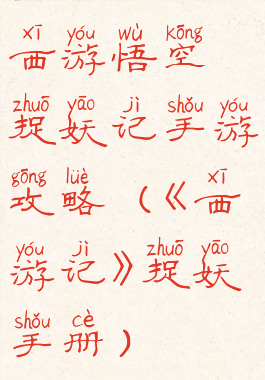 xī yóu wù kōng
西游悟空
zhuō yāo jì shǒu yóu
捉妖记手游
gōng lüè xī
攻略（《西
yóu jì zhuō yāo
游记》捉妖
shǒu cè
手册）